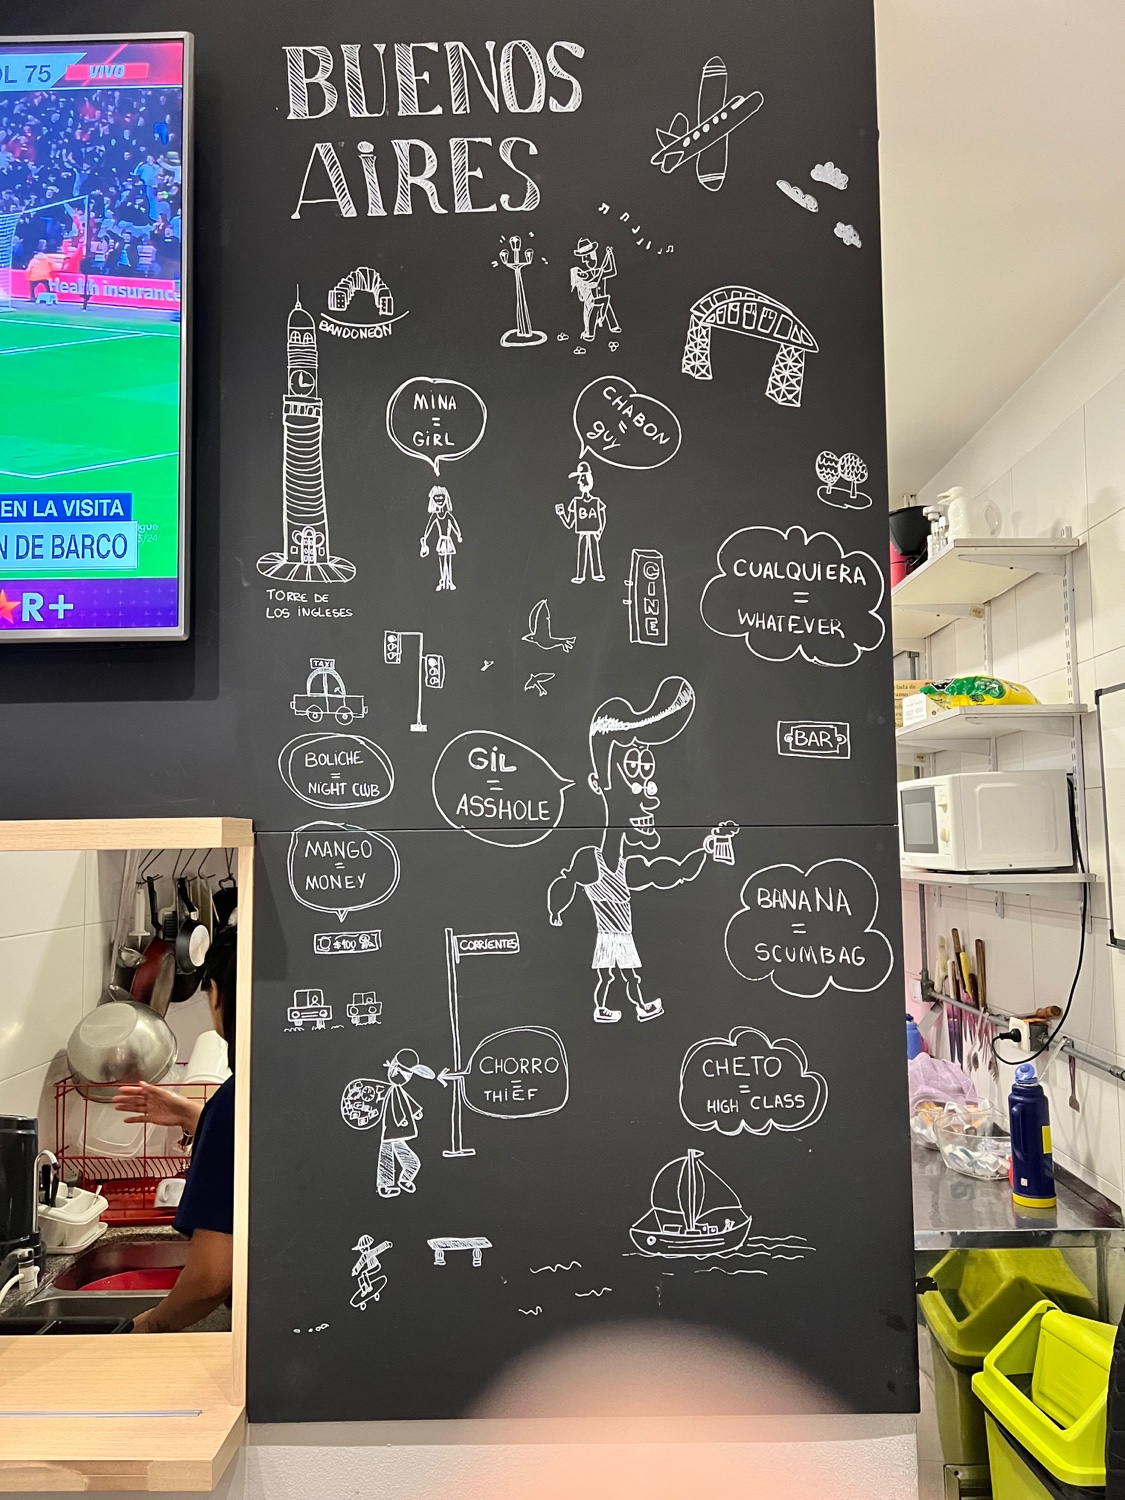 BUENOS
AiRES
OL 75
VIVO
Health insurance
EN LA VISITA
N DE BARCO
R+
BANDONEÓN
MiNA
=
GiRL
CHABON
=
guy
BA
TORRE DE
LOS INGLESES
CINE
CUALQUIERA
=
WHATEVER
TAXI
BOLICHE
=
NIGHT CLUB
GiL
=
ASSHOLE
BAR
MANGO
=
MONEY
$100
CORRIENTES
BANANA
=
SCUMBAG
CHORRO
=
THiEF
CHETO
=
HIGH CLASS